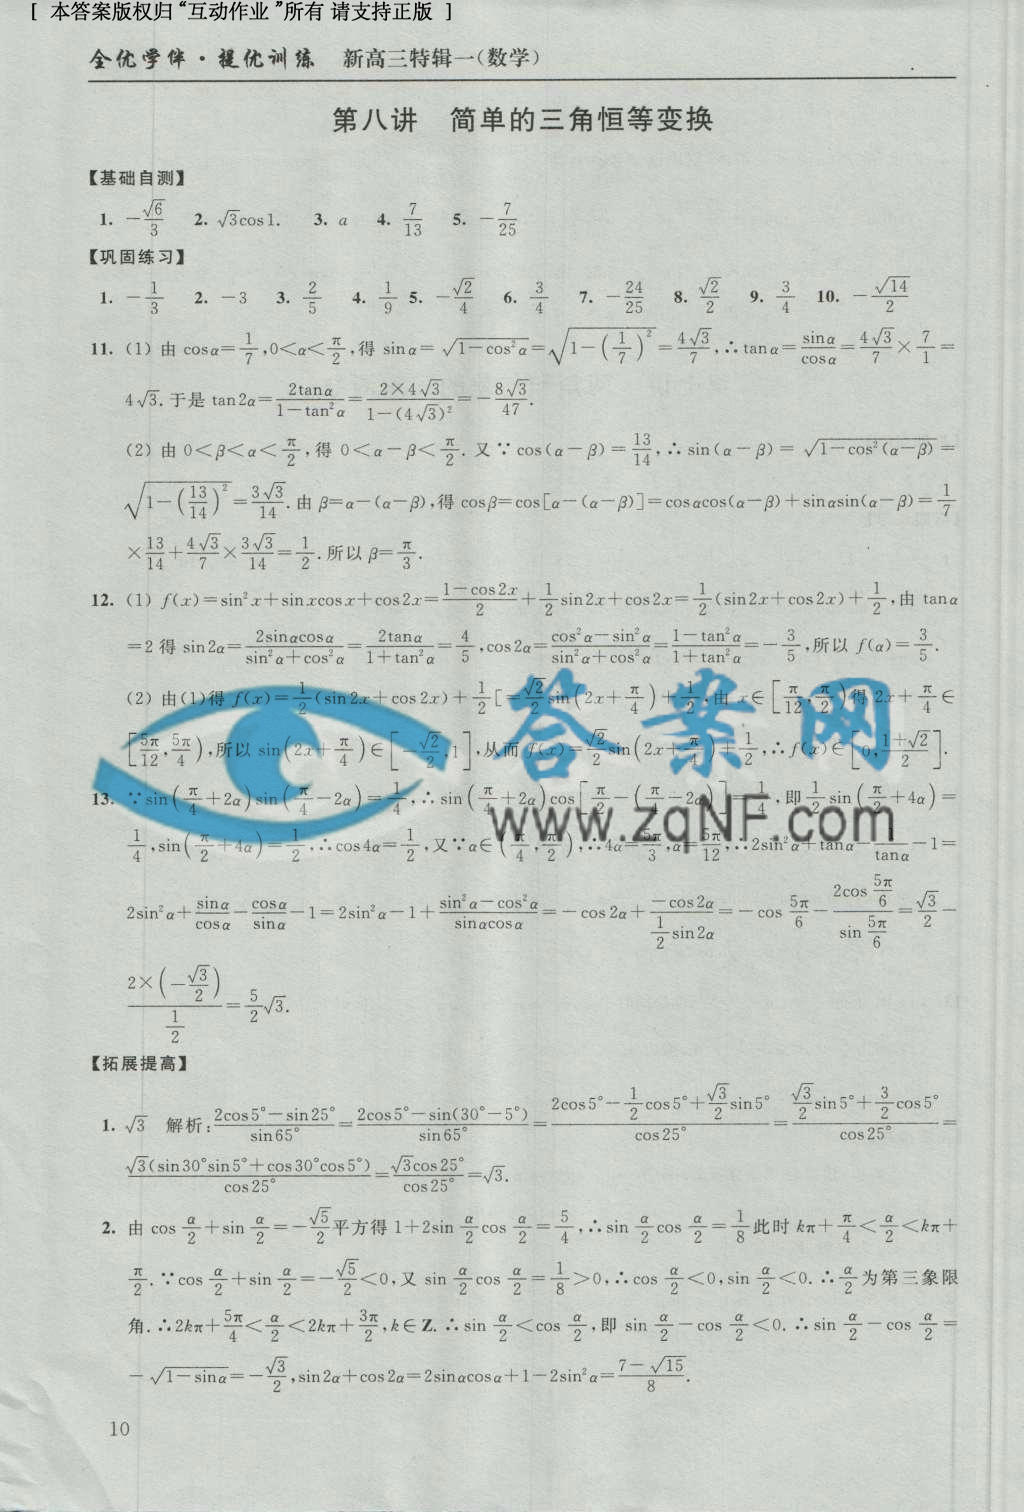 [ 本答案版权归 “互动作业 ”所有 请支持正版 ]
全优学伴·提优训练 新高三特辑一(数学)
第八讲 简单的三角恒等变换
【基础自测】
1. -√6/3 2. √3cos1. 3. a 4. 7/13 5. -7/25
【巩固练习】
1. -1/3 2. -3 3. 2/5 4. 1/9 5. -√2/4 6. 3/4 7. -24/25 8. √2/2 9. 3/4 10. -√14/2
11. (1) 由 cosα=1/7,0<α<π/2,得 sinα=√(1-cos²α)=√(1-(1/7)²)=4√3/7,∴tanα=sinα/cosα=4√3/7×7/1=
4√3.于是 tan2α=2tanα/(1-tan²α)=2×4√3/(1-(4√3)²)=-8√3/47.
(2) 由 0<β<α<π/2,得 0<α-β<π/2.又∵cos(α-β)=13/14,∴sin(α-β)=√(1-cos²(α-β))=
√(1-(13/14)²)=3√3/14.由 β=α-(α-β),得 cosβ=cos[α-(α-β)]=cosαcos(α-β)+sinαsin(α-β)=1/7
×13/14+4√3/7×3√3/14=1/2.所以 β=π/3.
12. (1) f(x)=sin²x+sinxcosx+cos2x=(1-cos2x)/2+1/2sin2x+cos2x=1/2(sin2x+cos2x)+1/2,由 tanα
=2得 sin2α=2sinαcosα/(sin²α+cos²α)=2tanα/(1+tan²α)=4/5,cos2α=(cos²α-sin²α)/(sin²α+cos²α)=(1-tan²α)/(1+tan²α)=-3/5,所以 f(α)=3/5.
(2) 由(1)得 f(x)=1/2(sin2x+cos2x)+1/2[=√2/2sin(2x+π/4)+1/2.由 x∈[π/12,π/2)得 2x+π/4∈
[5π/12,5π/4),所以 sin(2x+π/4)∈[-√2/2,1],从而 f(x)=√2/2sin(2x+π/4)+1/2,∴f(x)∈[0,(1+√2)/2].
13. ∵sin(π/4+2α)sin(π/4-2α)=1/4,∴sin(π/4+2α)cos[π/2-(π/4-2α)]=1/4,即1/2sin(π/2+4α)=
1/4,sin(π/2+4α)=1/2,∴cos4α=1/2,又∵α∈(π/4,π/2),∴4α=5π/3,α=5π/12,∴2sin²α+tanα-1/tanα-1=
2sin²α+sinα/cosα-cosα/sinα-1=2sin²α-1+(sin²α-cos²α)/(sinαcosα)=-cos2α+(-cos2α)/(1/2sin2α)=-cos5π/6-(2cos5π/6)/(sin5π/6)=√3/2-
(2×(-√3/2))/(1/2)=5/2√3.
答案网
www.zqNF.com
【拓展提高】
1. √3 解析:(2cos5°-sin25°)/sin65°=(2cos5°-sin(30°-5°))/sin65°=(2cos5°-1/2cos5°+√3/2sin5°)/cos25°=(√3/2sin5°+3/2cos5°)/cos25°=
√3(sin30°sin5°+cos30°cos5°)/cos25°=√3cos25°/cos25°=√3.
2. 由 cosα/2+sinα/2=-√5/2平方得 1+2sinα/2cosα/2=5/4,∴sinα/2cosα/2=1/8此时 kπ+π/4<α/2<kπ+
π/2.∵cosα/2+sinα/2=-√5/2<0,又 sinα/2cosα/2=1/8>0,∴cosα/2<0,sinα/2<0.∴α/2为第三象限
角.∴2kπ+5π/4<α/2<2kπ+3π/2,k∈Z.∴sinα/2<cosα/2,即 sinα/2-cosα/2<0.∴sinα/2-cosα/2=
-√(1-sinα)=-√3/2,sin2α+cos2α=2sinαcosα+1-2sin²α=(7-√15)/8.
10